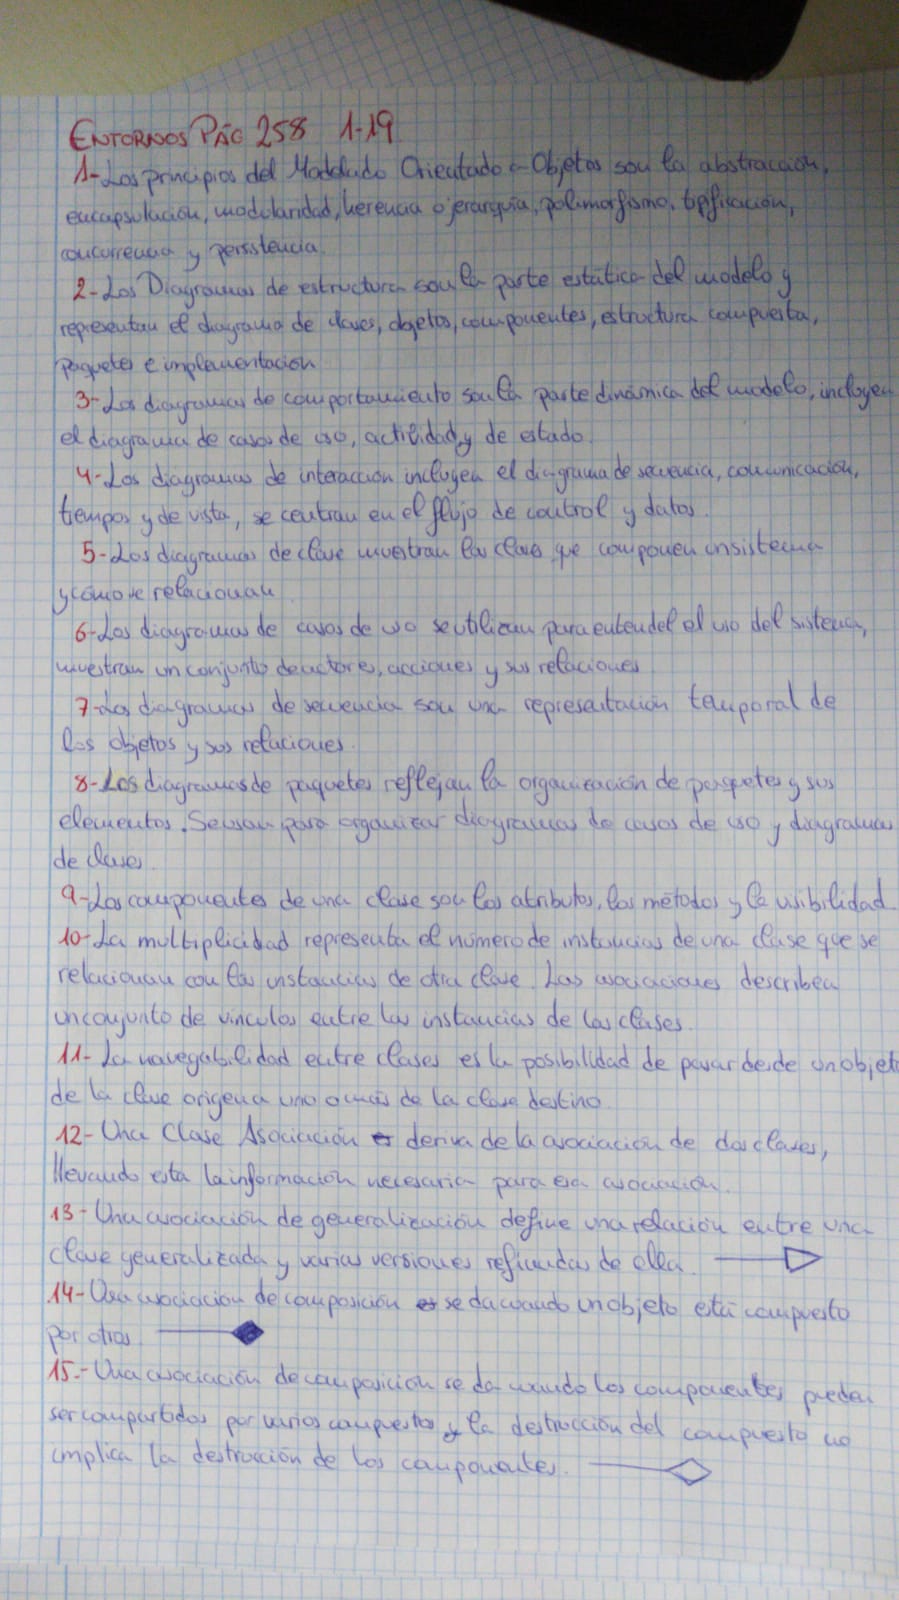 ENTORNOS PÁG 258 1-19
1-Los principios del Modelado Orientado a Objetos son la abstracción,
encapsulación, modularidad, herencia o jerarquía, polimorfismo, tipificación,
concurrencia y persistencia.
2-Los Diagramas de estructura son la parte estática del modelo y
representan el diagrama de clases, objetos, componentes, estructura compuesta,
paquetes e implementación
3-Los diagramas de comportamiento son la parte dinámica del modelo, incluyen
el diagrama de casos de uso, actividad y de estado.
4-Los diagramas de interacción incluyen el diagrama de secuencia, comunicación,
tiempos y de vista, se centran en el flujo de control y datos.
5-Los diagramas de clase muestran las clases que componen un sistema
y cómo se relacionan
6-Los diagramas de casos de uso se utilizan para entendel el uso del sistema,
muestran un conjunto de actores, acciones y sus relaciones
7-Los diagramas de secuencia son una representación temporal de
los objetos y sus relaciones.
8-Los diagramas de paquetes reflejan la organización de paquetes y sus
elementos. Se usan para organizar diagramas de casos de uso y diagramas
de clases.
9-Los componentes de una clase son los atributos, los métodos y la visibilidad
10-La multiplicidad representa el número de instancias de una clase que se
relacionan con las instancias de otra clase. Las asociaciones describen
un conjunto de vínculos entre las instancias de las clases.
11-La navegabilidad entre clases es la posibilidad de pasar desde un objet
de la clase origen a uno o más de la clase destino
12-Una Clase Asociación deriva de la asociación de dos clases,
llevando esta la información necesaria para esa asociación.
13-Una asociación de generalización define una relación entre una
clase generalizada y varias versiones refinadas de ella.
14-Una asociación de composición se da cuando un objeto está compuesto
por otros
15.-Una asociación de composición se da cuando los componentes pueden
ser compartidos por varios compuestos y la destrucción del compuesto no
implica la destrucción de los componentes.